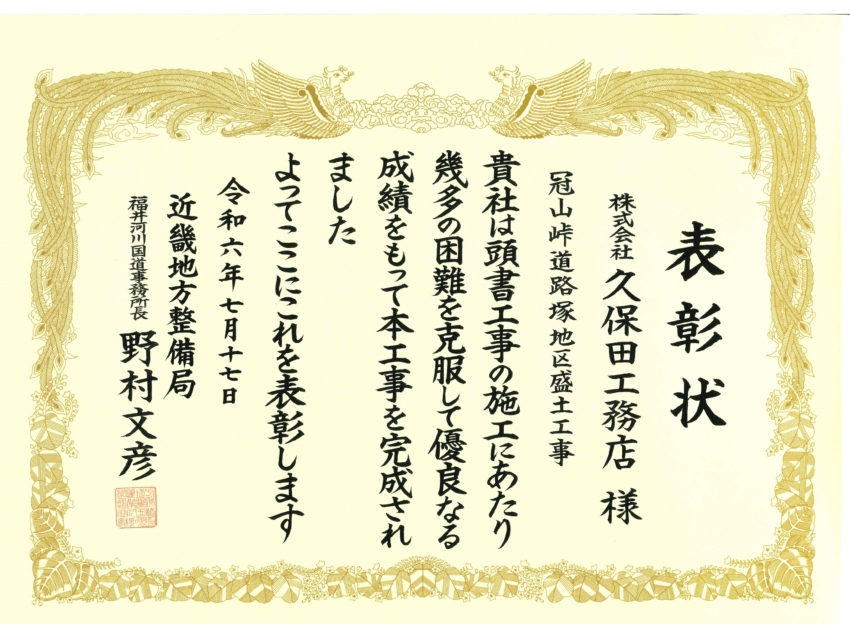 表彰状
株式会社 久保田工務店 様
冠山峠道路塚地区盛土工事
貴社は頭書工事の施工にあたり
幾多の困難を克服して優良なる
成績をもって本工事を完成され
ました
よってここにこれを表彰します
令和六年七月十七日
近畿地方整備局
福井河川国道事務所長 野村文彦